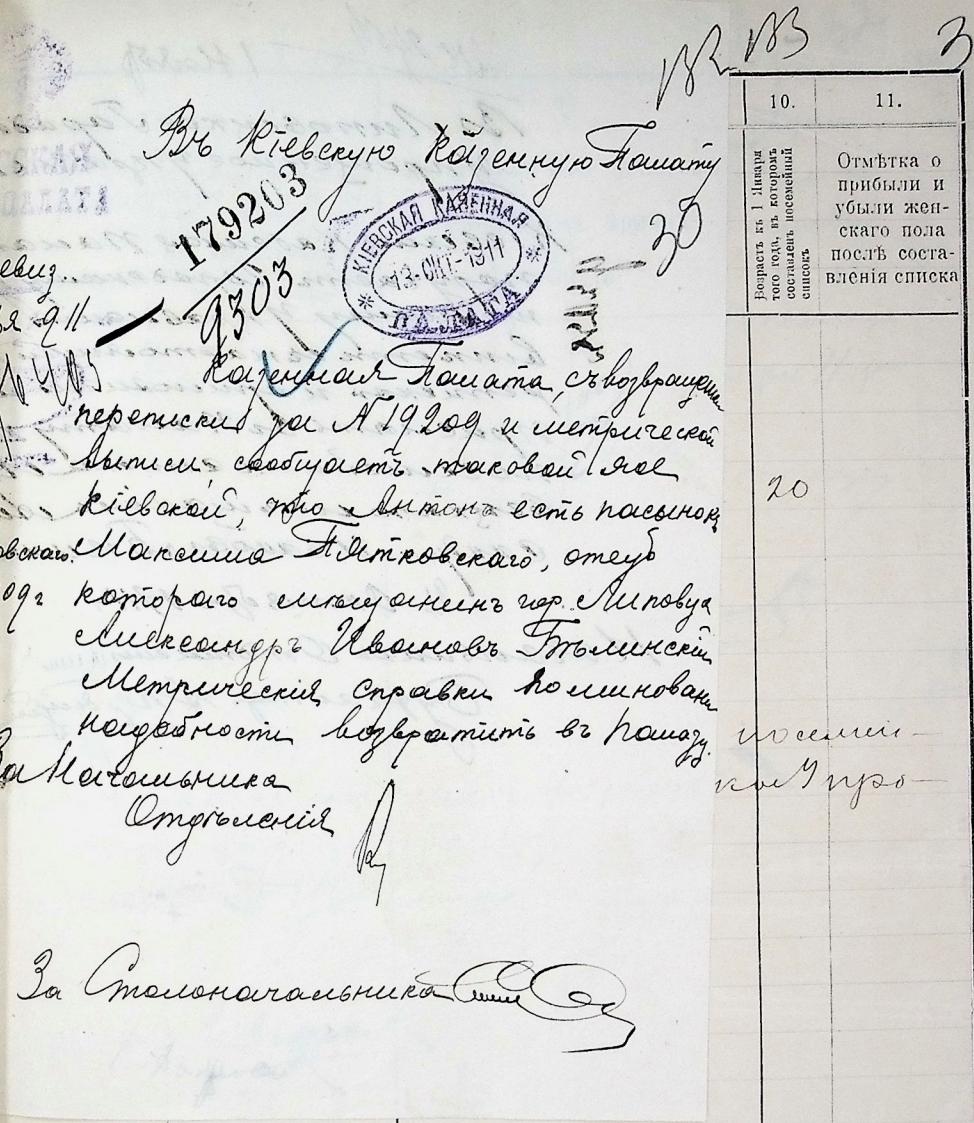 3
Въ Кіевскую Казенную Палату
179203
9303
КІЕВСКАЯ КАЗЕННАЯ
13-ОКТ-1911
ПАЛАТА
30
911
Казенная Палата, съ возвращеніем
переписки за N 19209 и метрической
выписи, сообщаетъ таковой же
Кіевской, что Антонъ есть пасынокъ
Максима Пятковскаго, отецъ
котораго мѣщанинъ гор. Липовца
Александръ Ивановъ Бѣлинскій
Метрическія справки по минованіи
надобности возвратить въ Палату.
За Начальника
Отдѣленія
За Столоначальника
10.
Возрастъ къ 1 Января
того года, въ которомъ
составленъ посемейный
списокъ
20
11.
Отмѣтка о
прибыли и
убыли жен-
скаго пола
послѣ соста-
вленія списка